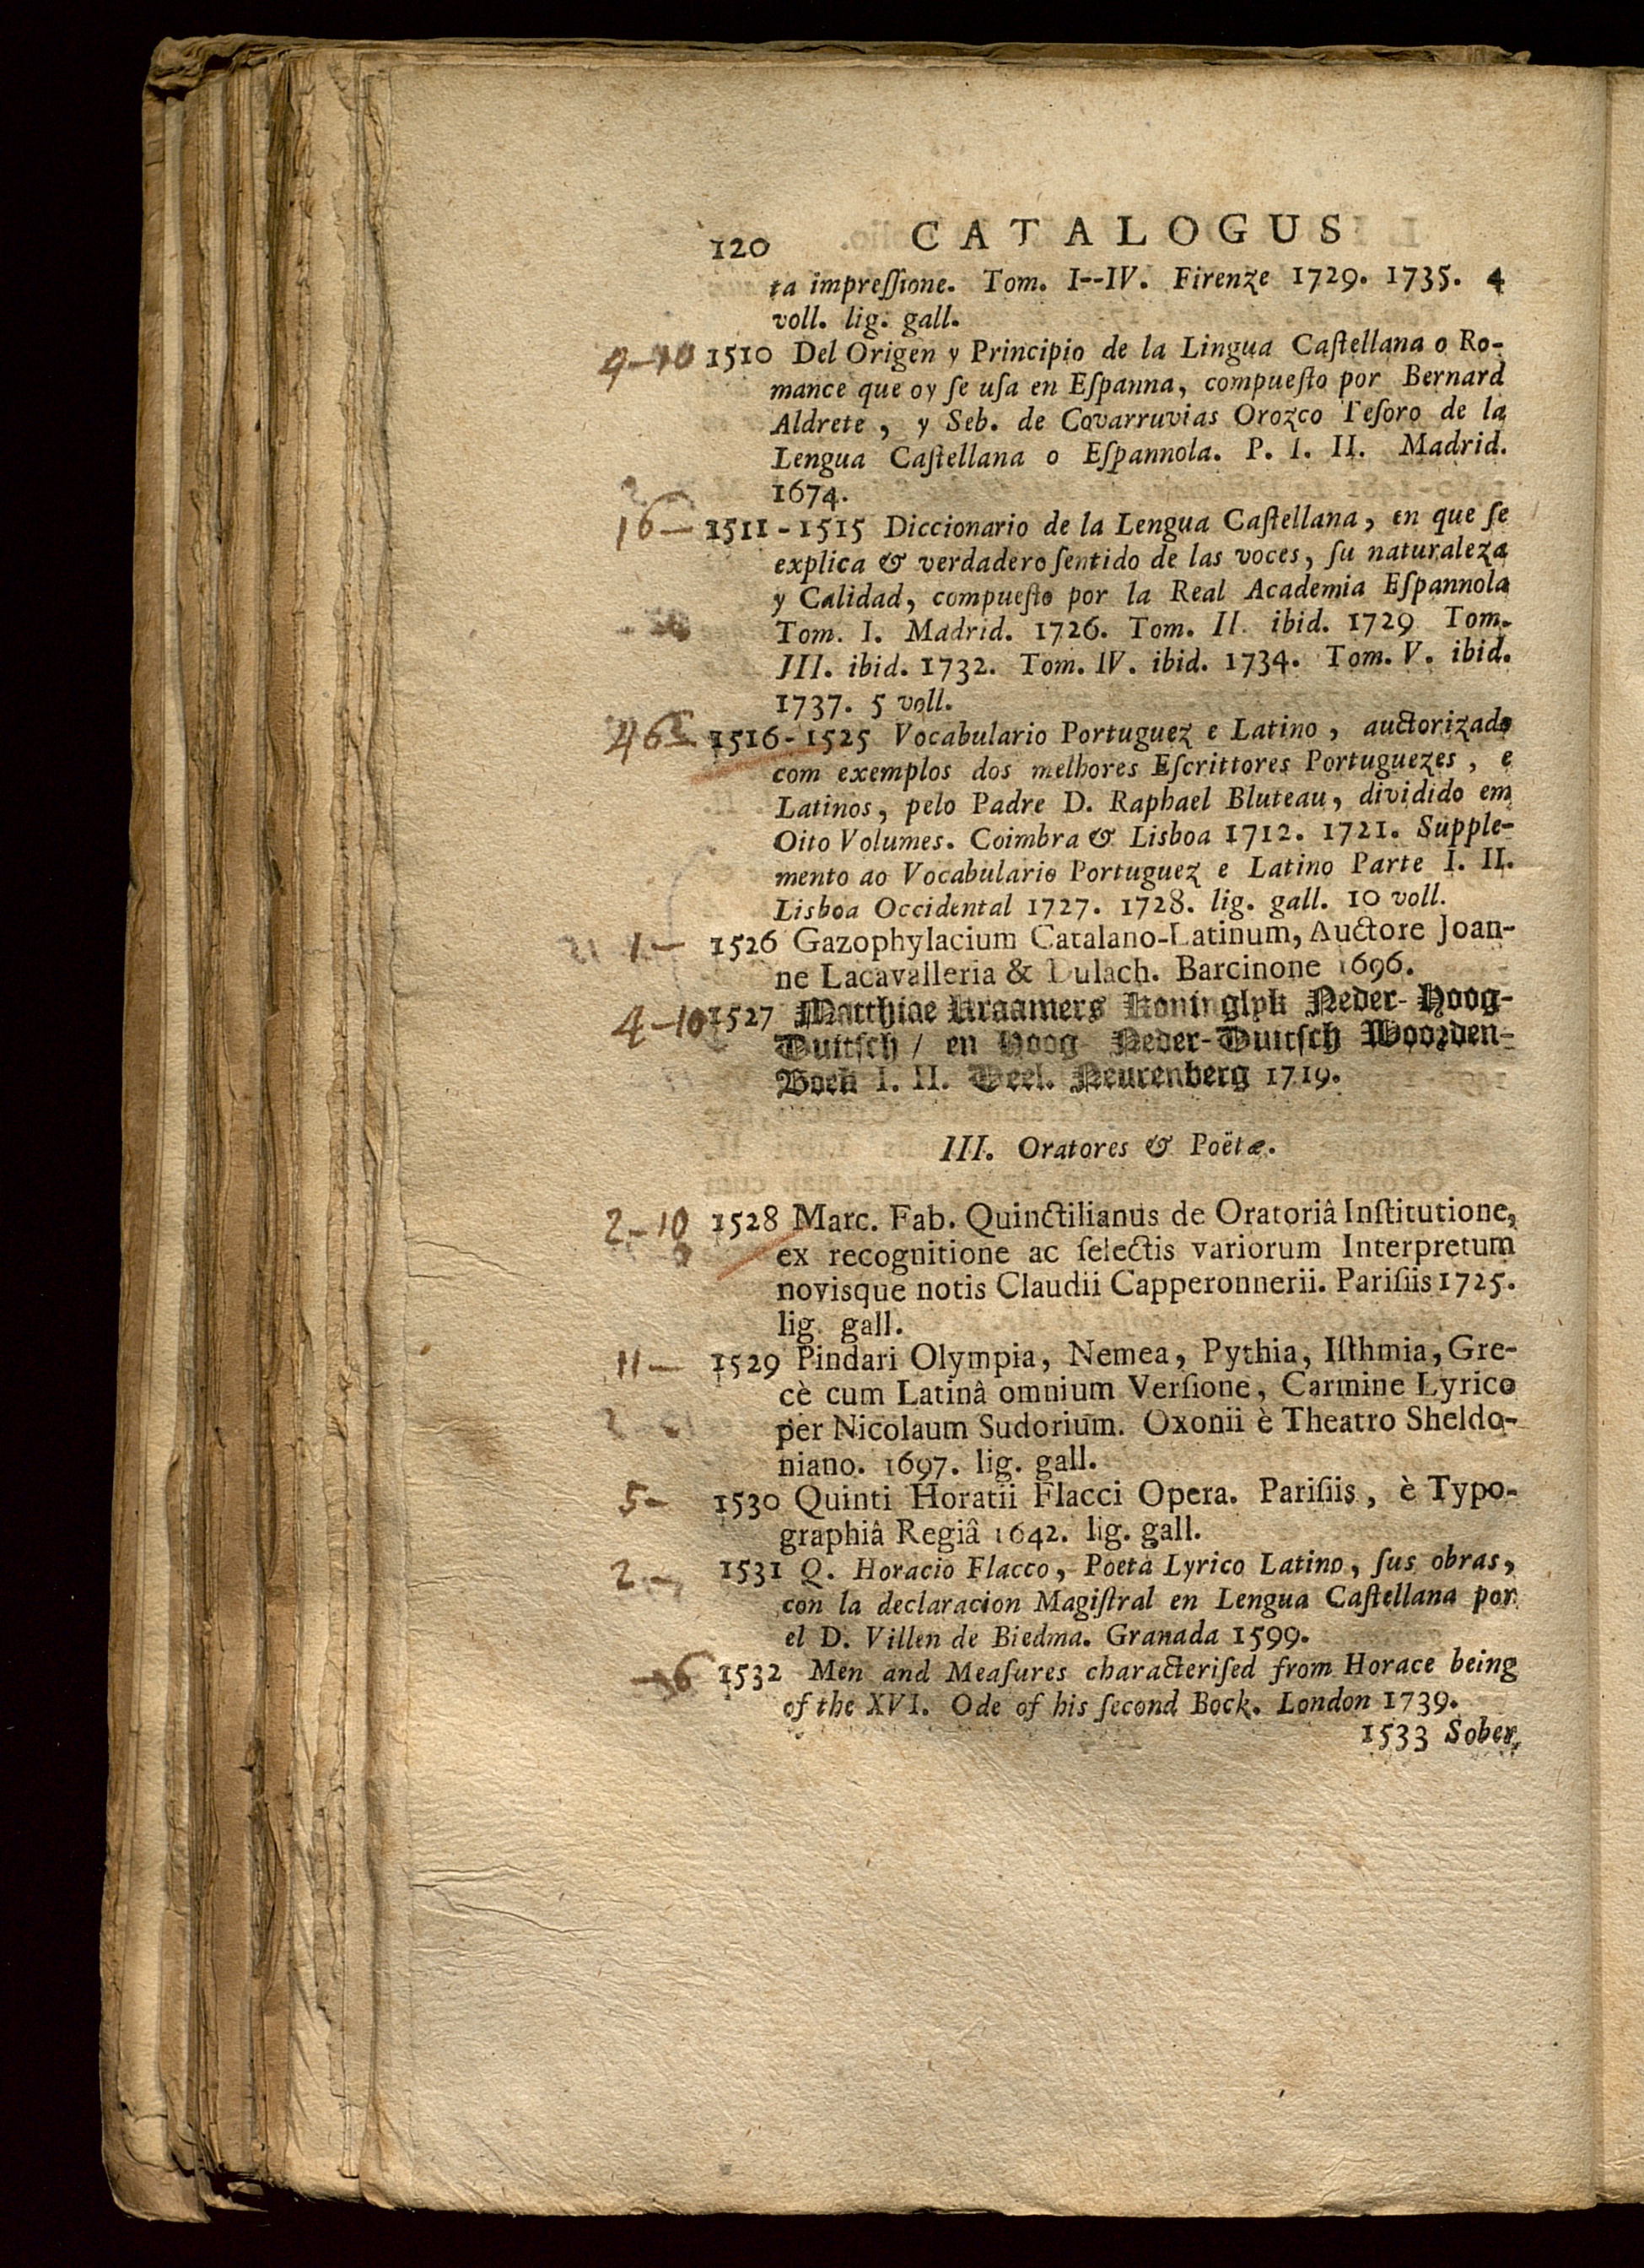 120 CATALOGUS
ta impreſſione. Tom. I--IV. Firenze 1729. 1735. 4
voll. lig. gall.
4-10 1510 Del Origen y Principio de la Lingua Caſtellana o Ro-
mance que oy ſe uſa en Eſpanna, compueſto por Bernard
Aldrete, y Seb. de Covarruvias Orozco Teſoro de la
Lengua Caſtellana o Eſpannola. P. I. II. Madrid.
1674.
16- 1511-1515 Diccionario de la Lengua Caſtellana, en que ſe
explica & verdadero ſentido de las voces, ſu naturaleza
y Calidad, compueſto por la Real Academia Eſpannola
Tom. I. Madrid. 1726. Tom. II. ibid. 1729 Tom.
III. ibid. 1732. Tom. IV. ibid. 1734. Tom. V. ibid.
1737. 5 voll.
46- 1516-1525 Vocabulario Portuguez e Latino, auctorizado
com exemplos dos melhores Eſcrittores Portuguezes, e
Latinos, pelo Padre D. Raphael Bluteau, dividido em
Oito Volumes. Coimbra & Lisboa 1712. 1721. Supple-
mento ao Vocabulario Portuguez e Latino Parte I. II.
Lisboa Occidental 1727. 1728. lig. gall. 10 voll.
1- 1526 Gazophylacium Catalano-Latinum, Auctore Joan-
ne Lacavalleria & Dulach. Barcinone 1696.
4-10 1527 Matthiae Kraamers Koninglyk Neder-Hoog-
Duitsch / en Hoog Neder-Duitsch Woorden-
Boek I. II. Deel. Neurenberg 1719.
III. Oratores & Poëtæ.
2-10 1528 Marc. Fab. Quinctilianus de Oratoriâ Inſtitutione,
ex recognitione ac ſelectis variorum Interpretum
noviſque notis Claudii Capperonnerii. Pariſiis 1725.
lig. gall.
11- 1529 Pindari Olympia, Nemea, Pythia, Iſthmia, Gre-
cè cum Latinâ omnium Verſione, Carmine Lyrico
per Nicolaum Sudorium. Oxonii è Theatro Sheldo-
niano. 1697. lig. gall.
5- 1530 Quinti Horatii Flacci Opera. Pariſiis, è Typo-
graphiâ Regiâ 1642. lig. gall.
2- 1531 Q. Horacio Flacco, Poeta Lyrico Latino, ſus obras,
con la declaracion Magiſtral en Lengua Caſtellana por
el D. Villen de Biedma. Granada 1599.
-36 1532 Men and Meaſures characteriſed from Horace being
of the XVI. Ode of his ſecond Bock. London 1739.
1533 Sober,